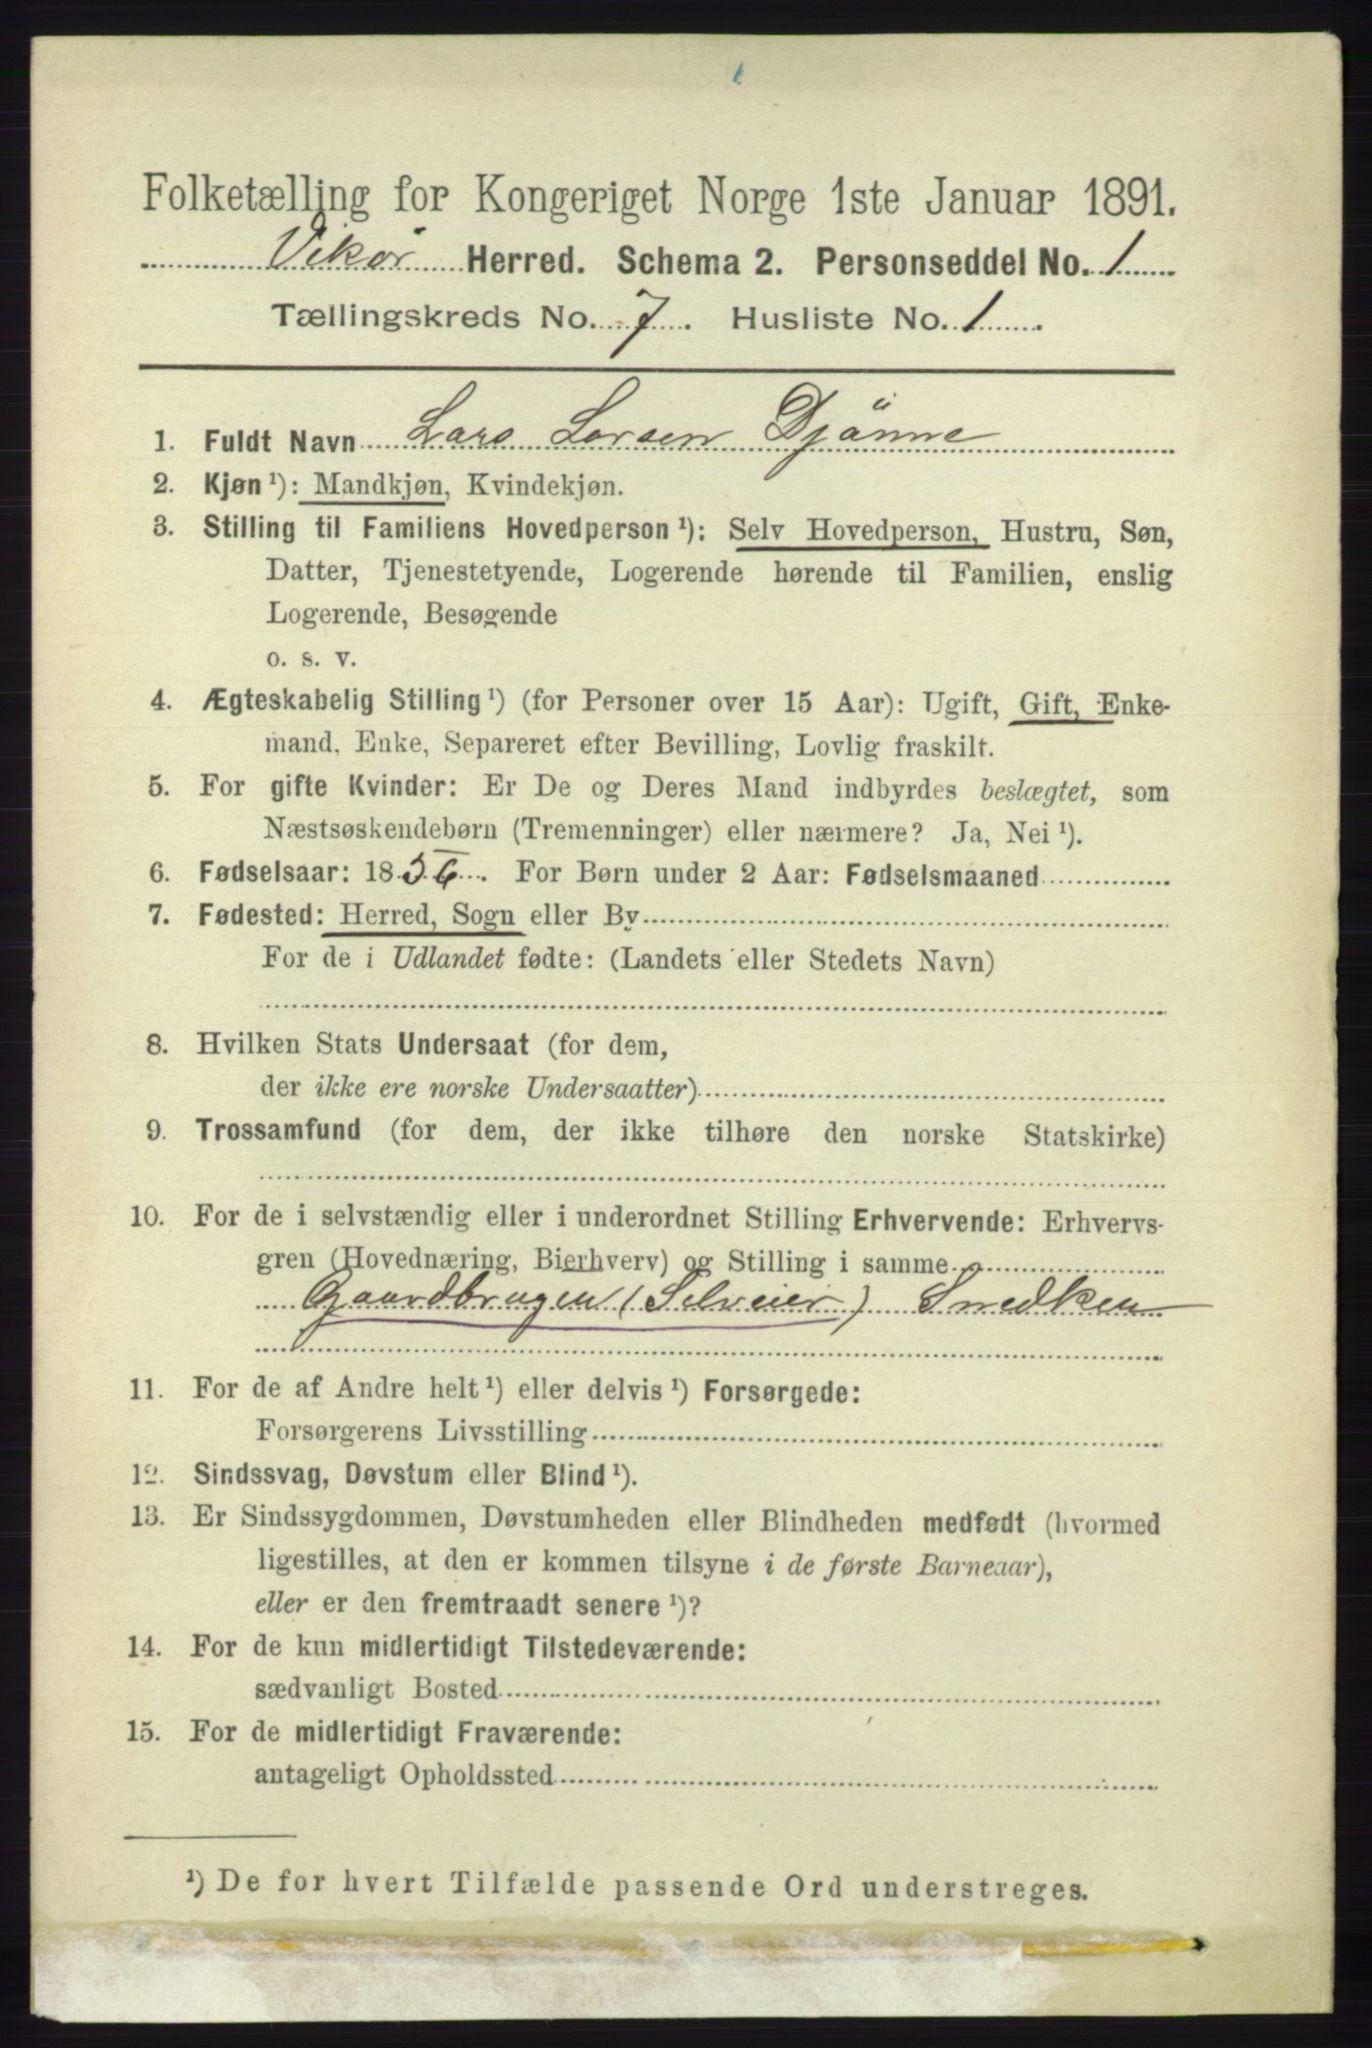 Folketælling for Kongeriget Norge 1ste Januar 1891.
Vikør Herred. Schema 2. Personseddel No. 1
Tællingskreds No. 7. Husliste No. 1.
1. Fuldt Navn Lars Larsen Djönne
2. Kjøn ¹): Mandkjøn, Kvindekjøn.
3. Stilling til Familiens Hovedperson ¹): Selv Hovedperson, Hustru, Søn,
Datter, Tjenestetyende, Logerende hørende til Familien, enslig
Logerende, Besøgende
o. s. v.
4. Ægteskabelig Stilling ¹) (for Personer over 15 Aar): Ugift, Gift, Enke-
mand, Enke, Separeret efter Bevilling, Lovlig fraskilt.
5. For gifte Kvinder: Er De og Deres Mand indbyrdes beslægtet, som
Næstsøskendebørn (Tremenninger) eller nærmere? Ja, Nei ¹).
6. Fødselsaar: 1856. For Børn under 2 Aar: Fødselsmaaned
7. Fødested: Herred, Sogn eller By
For de i Udlandet fødte: (Landets eller Stedets Navn)
8. Hvilken Stats Undersaat (for dem,
der ikke ere norske Undersaatter)
9. Trossamfund (for dem, der ikke tilhøre den norske Statskirke)
10. For de i selvstændig eller i underordnet Stilling Erhvervende: Erhvervs-
gren (Hovednæring, Bierhverv) og Stilling i samme
Gaardbrugen (Selveier) Snedken
11. For de af Andre helt ¹) eller delvis ¹) Forsørgede:
Forsørgerens Livsstilling
12. Sindssvag, Døvstum eller Blind ¹).
13. Er Sindssygdommen, Døvstumheden eller Blindheden medfødt (hvormed
ligestilles, at den er kommen tilsyne i de første Barneaar),
eller er den fremtraadt senere ¹)?
14. For de kun midlertidigt Tilstedeværende:
sædvanligt Bosted
15. For de midlertidigt Fraværende:
antageligt Opholdssted
¹) De for hvert Tilfælde passende Ord understreges.